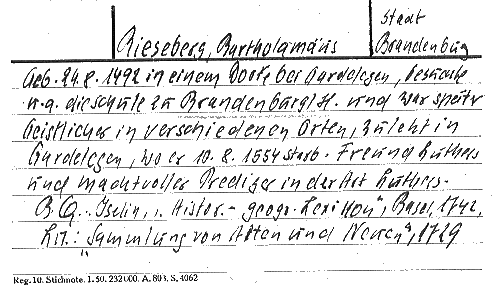 Stadt
Rieseberg, Bartholomäus Brandenburg
Geb. 24.8.1492 in einem Dorfe bei Gardelegen, besuchte
u.a. die Schule zu Brandenburg/H. und war später
Geistlicher in verschiedenen Orten, zuletzt in
Gardelegen, wo er 10.8.1554 starb. Freund Luthers
und machtvoller Prediger in der Art Luthers.
B.Q.. Iselin, „Histor.-geogr. Lexikon", Basel, 1742,
Lit.: „Sammlung von Alten und Neuen", 1729
Reg. 10. Stichnote. 1. 50. 232 000. A. 803. S. 4062